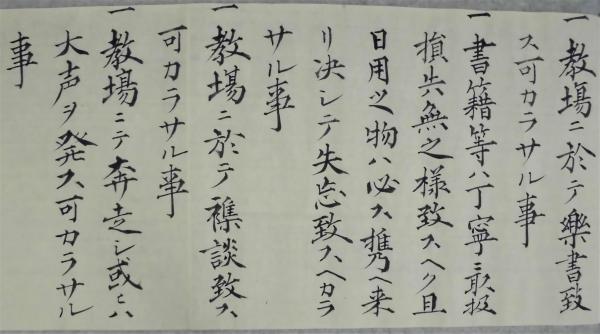 一教場ニ於テ樂書致
ス可カラサル事
一書籍等ハ丁寧ニ取扱
損失無之様致スヘク且
日用之物ハ必ス携ヘ来
リ決シテ失忘致スヘカラ
サル事
一教場ニ於テ襍談致ス
可カラサル事
一教場ニテ奔走シ或ハ
大声ヲ発ス可カラサル
事